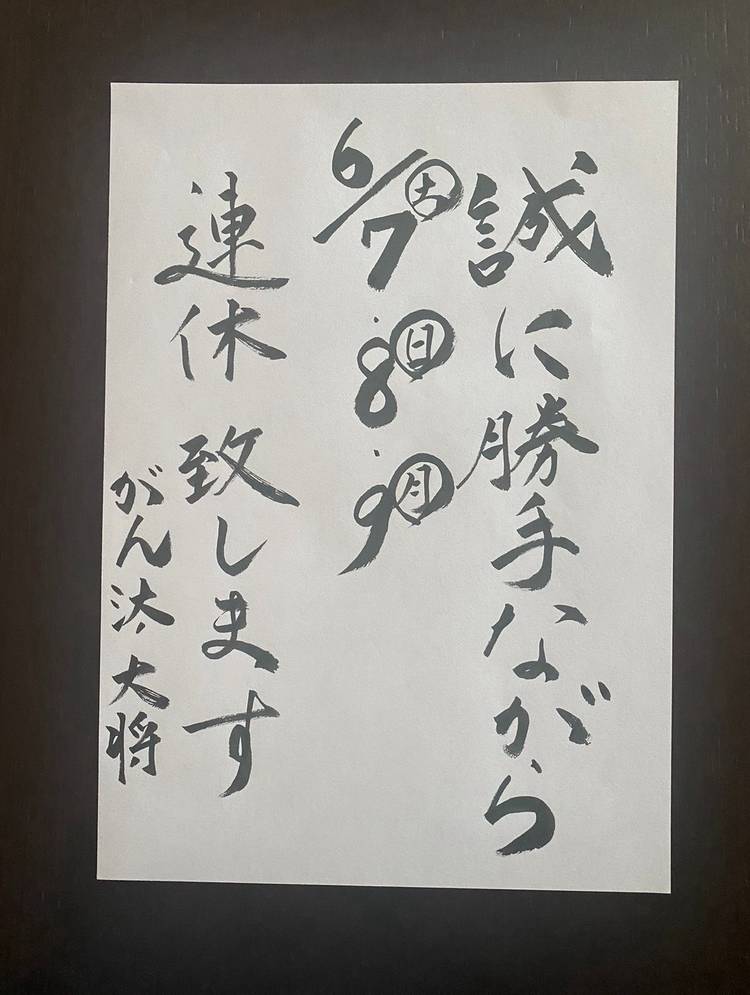 誠に勝手ながら
6/7㊏・8㊐・9㊊
連休致します
がん汰大将